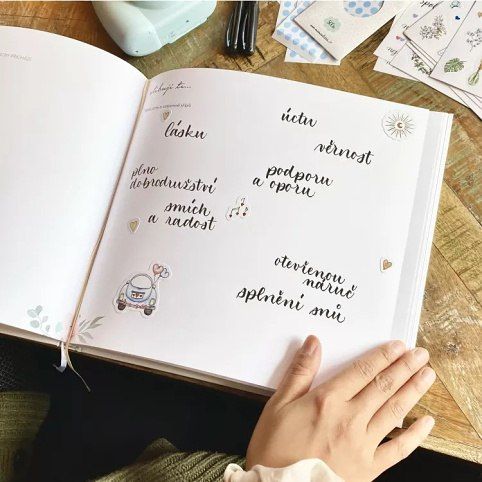 slibuji ti...
lásku
úctu
věrnost
plno
dobrodružství
podporu
a oporu
smích
a radost
otevřenou
náruč
splnění snů